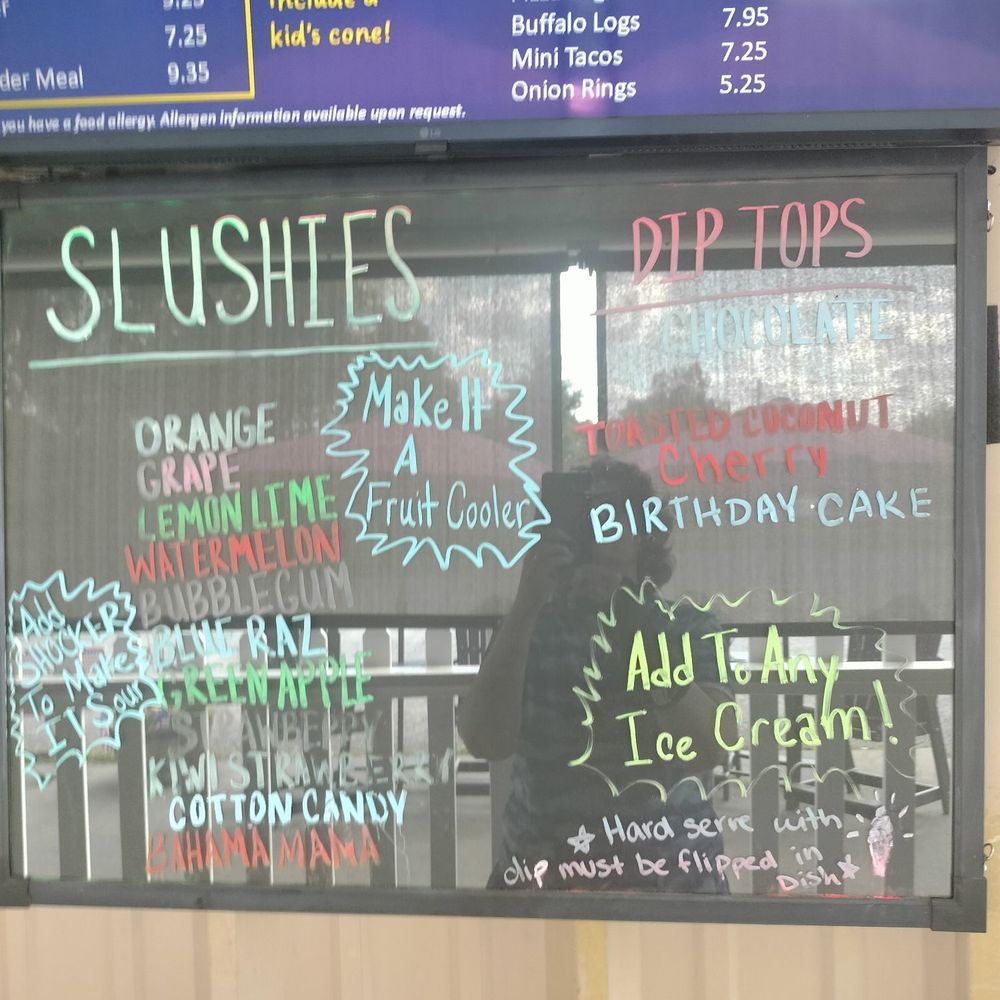 9.25
7.25
der Meal 9.35
include a
kid's cone!
Buffalo Logs 7.95
Mini Tacos 7.25
Onion Rings 5.25
you have a food allergy. Allergen information available upon request.
SLUSHIES
ORANGE
GRAPE
LEMON LIME
WATERMELON
BUBBLEGUM
BLUE RAZ
GREEN APPLE
STRAWBERRY
KIWI STRAWBERRY
COTTON CANDY
BAHAMA MAMA
Make It
A
Fruit Cooler
Add
SHOCKER
To Make
It Sour
DIP TOPS
CHOCOLATE
TOASTED COCONUT
Cherry
BIRTHDAY CAKE
Add To Any
Ice Cream!
Hard serve with
dip must be flipped in
Dish